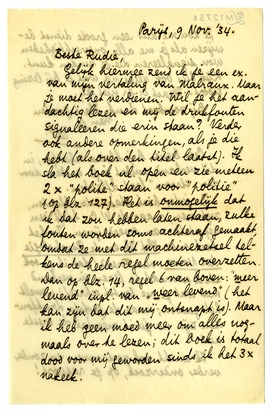 Parijs, 9 Nov. '34.
Beste Rudie,
Gelijk hiermee zend ik je een ex.
van mijn vertaling van Malraux. Maar
je moet het verdienen. Wil je het aan-
dachtig lezen en mij de drukfouten
signaleeren die erin staan? Verder
ook andere opmerkingen, als je die
hebt (als over den titel laatst). Ik
sla het boek nl. open en zie meteen
2 x "polite" staan voor "politie"
(op blz. 127). Het is onmogelijk dat
ik dat zou hebben laten staan, zulke
fouten worden soms achteraf gemaakt,
omdat ze met dit machinezetsel tel-
kens de heele regel moeten overzetten.
Dan op blz. 14, regel 6 van boven: "meer
levend" i.pl. van "weer levend" (het
kan zijn dat dit mij ontsnapt is). Maar
ik heb geen moed meer om alles nog-
maals over te lezen; dit boek is totaal
dood voor mij geworden sinds ik het 3x
nakeek.